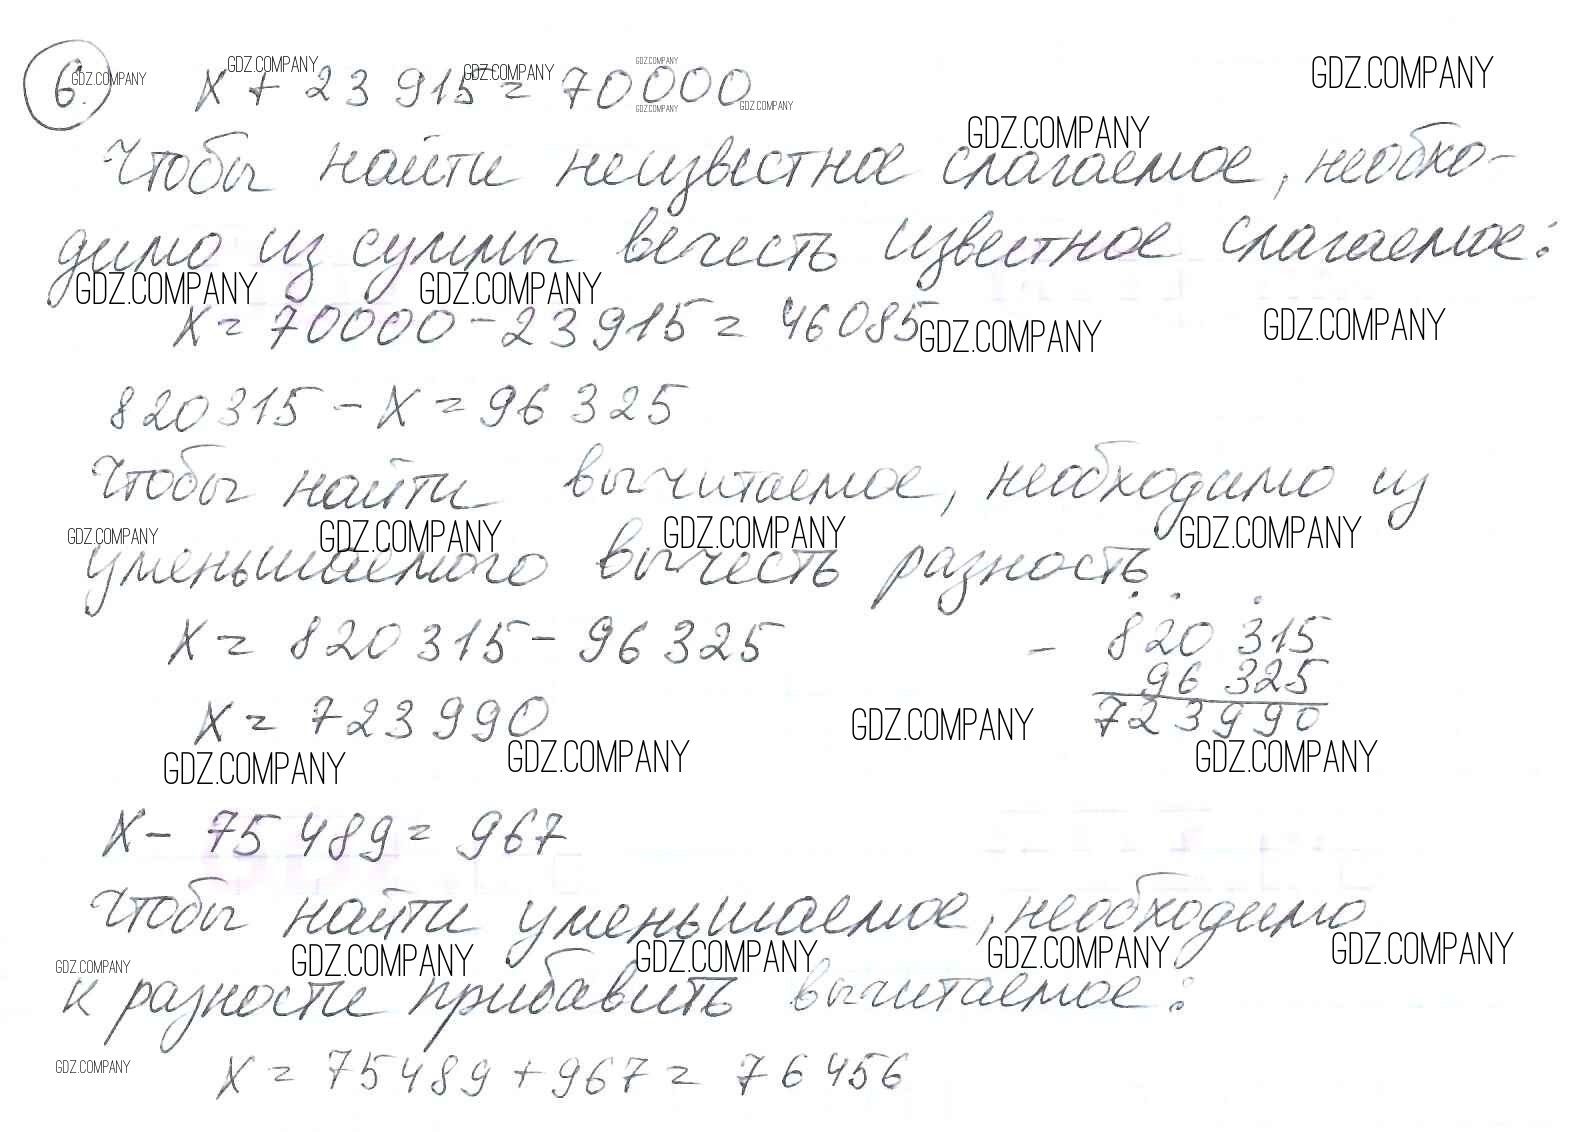 6. GDZ.COMPANY x + 23 915 = 70000 GDZ.COMPANY GDZ.COMPANY GDZ.COMPANY GDZ.COMPANY GDZ.COMPANY GDZ.COMPANY
GDZ.COMPANY
Чтобы найти неизвестное слагаемое, необхо-
димо из суммы вечесть известное слагаемое:
GDZ.COMPANY GDZ.COMPANY
x = 70000 - 23 915 = 46085 GDZ.COMPANY GDZ.COMPANY
820315 - x = 96 325
Чтобы найти вычитаемое, необходимо из
GDZ.COMPANY GDZ.COMPANY GDZ.COMPANY GDZ.COMPANY
уменьшаемого вычесть разность
x = 820 315 - 96 325 - 820 315
96 325
x = 723 990 GDZ.COMPANY 723990
GDZ.COMPANY GDZ.COMPANY GDZ.COMPANY
x - 75 489 = 967
Чтобы найти уменьшаемое, необходимо
GDZ.COMPANY GDZ.COMPANY GDZ.COMPANY GDZ.COMPANY GDZ.COMPANY
к разности прибавить вычитаемое:
GDZ.COMPANY x = 75489 + 967 = 76 456